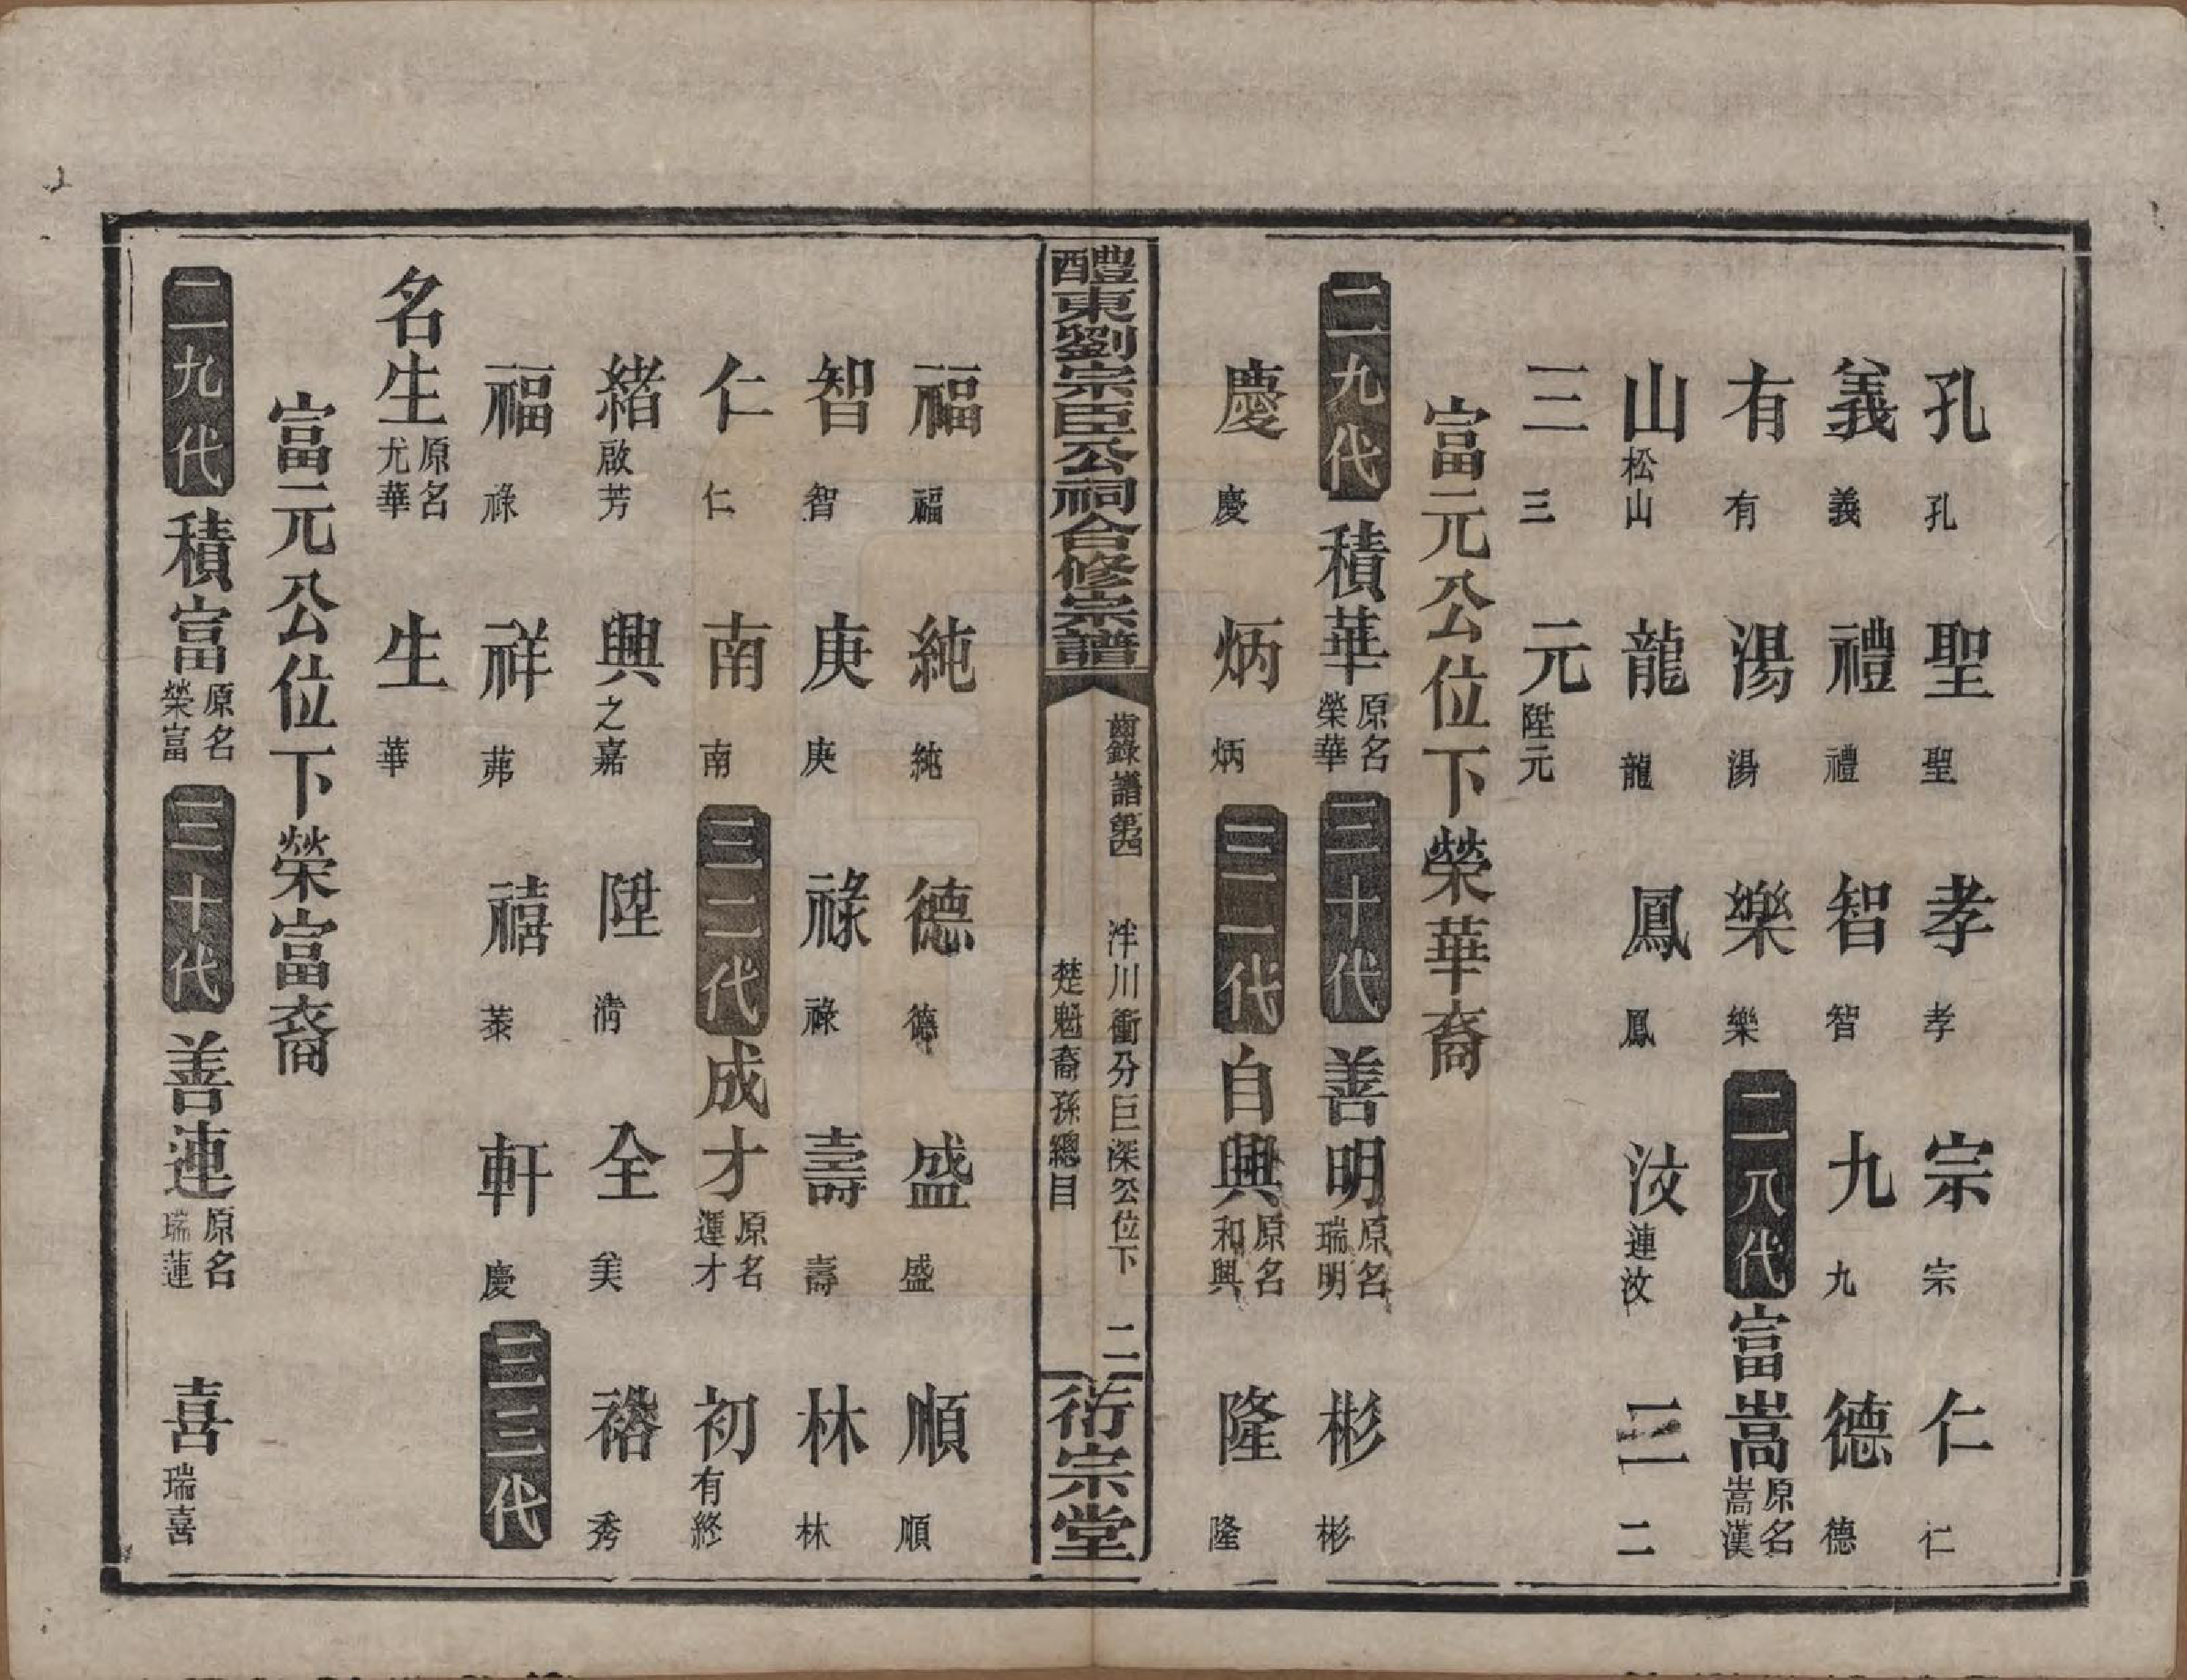 孔孔 聖聖 孝孝 宗宗 仁仁
義義 禮禮 智智 九九 德德
有有 湯湯 樂樂 二八代 富嵩原名嵩漢
山松山 龍龍 鳳鳳 汶連汶 二二
三三 元陞元
富元公位下榮華裔
二九代 積華原名榮華 三十代 善明原名瑞明 彬彬
慶慶 炳炳 三一代 自興原名和興 隆隆
醴東劉宗臣公祠合修宗譜
齒錄譜第四 泮川衝分巨深公位下 二
楚魁裔孫總目
衍宗堂
福福 純純 德德 盛盛 順順
智智 庚庚 祿祿 壽壽 林林
仁仁 南南 三二代 成才原名運才 初有終
緒啟芳 興之嘉 陞清 全美 裕秀
福祿 祥茀 禧蓁 軒慶 三三代
名生原名尤華 生華
富元公位下榮富裔
二九代 積富原名榮富 三十代 善連原名瑞蓮 喜瑞喜